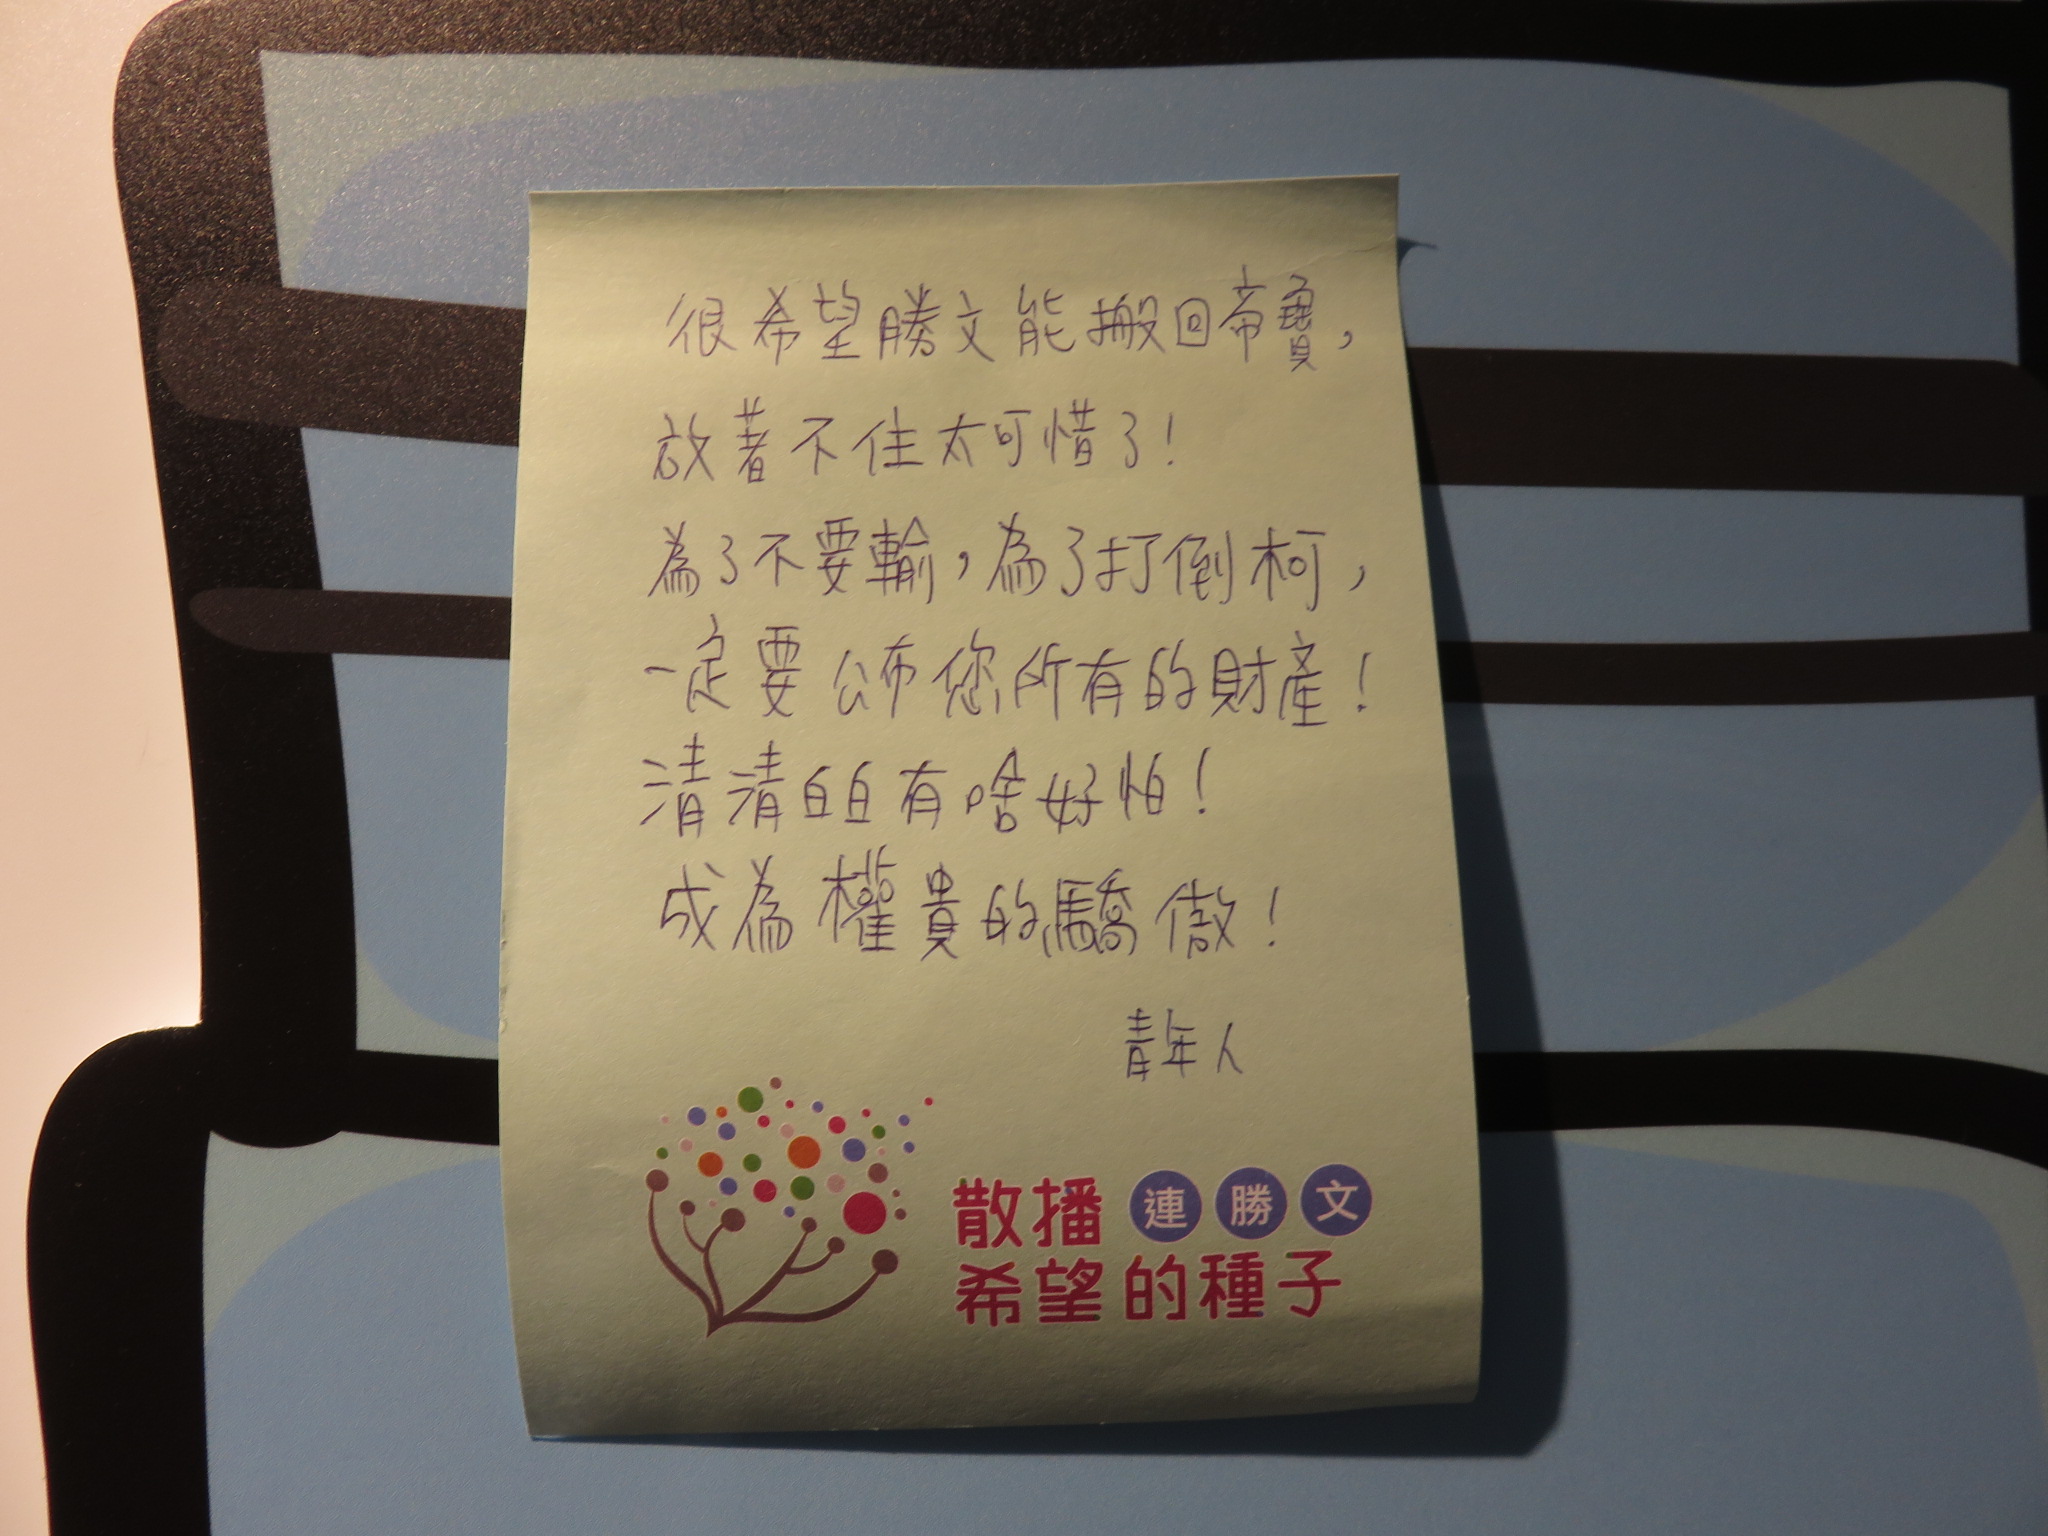 很希望勝文能搬回帝寶,
放著不住太可惜了!
為了不要輸,為了打倒柯,
一定要公布您所有的財產!
清清白白有啥好怕!
成為權貴的驕傲!
青年人
散播連勝文
希望的種子